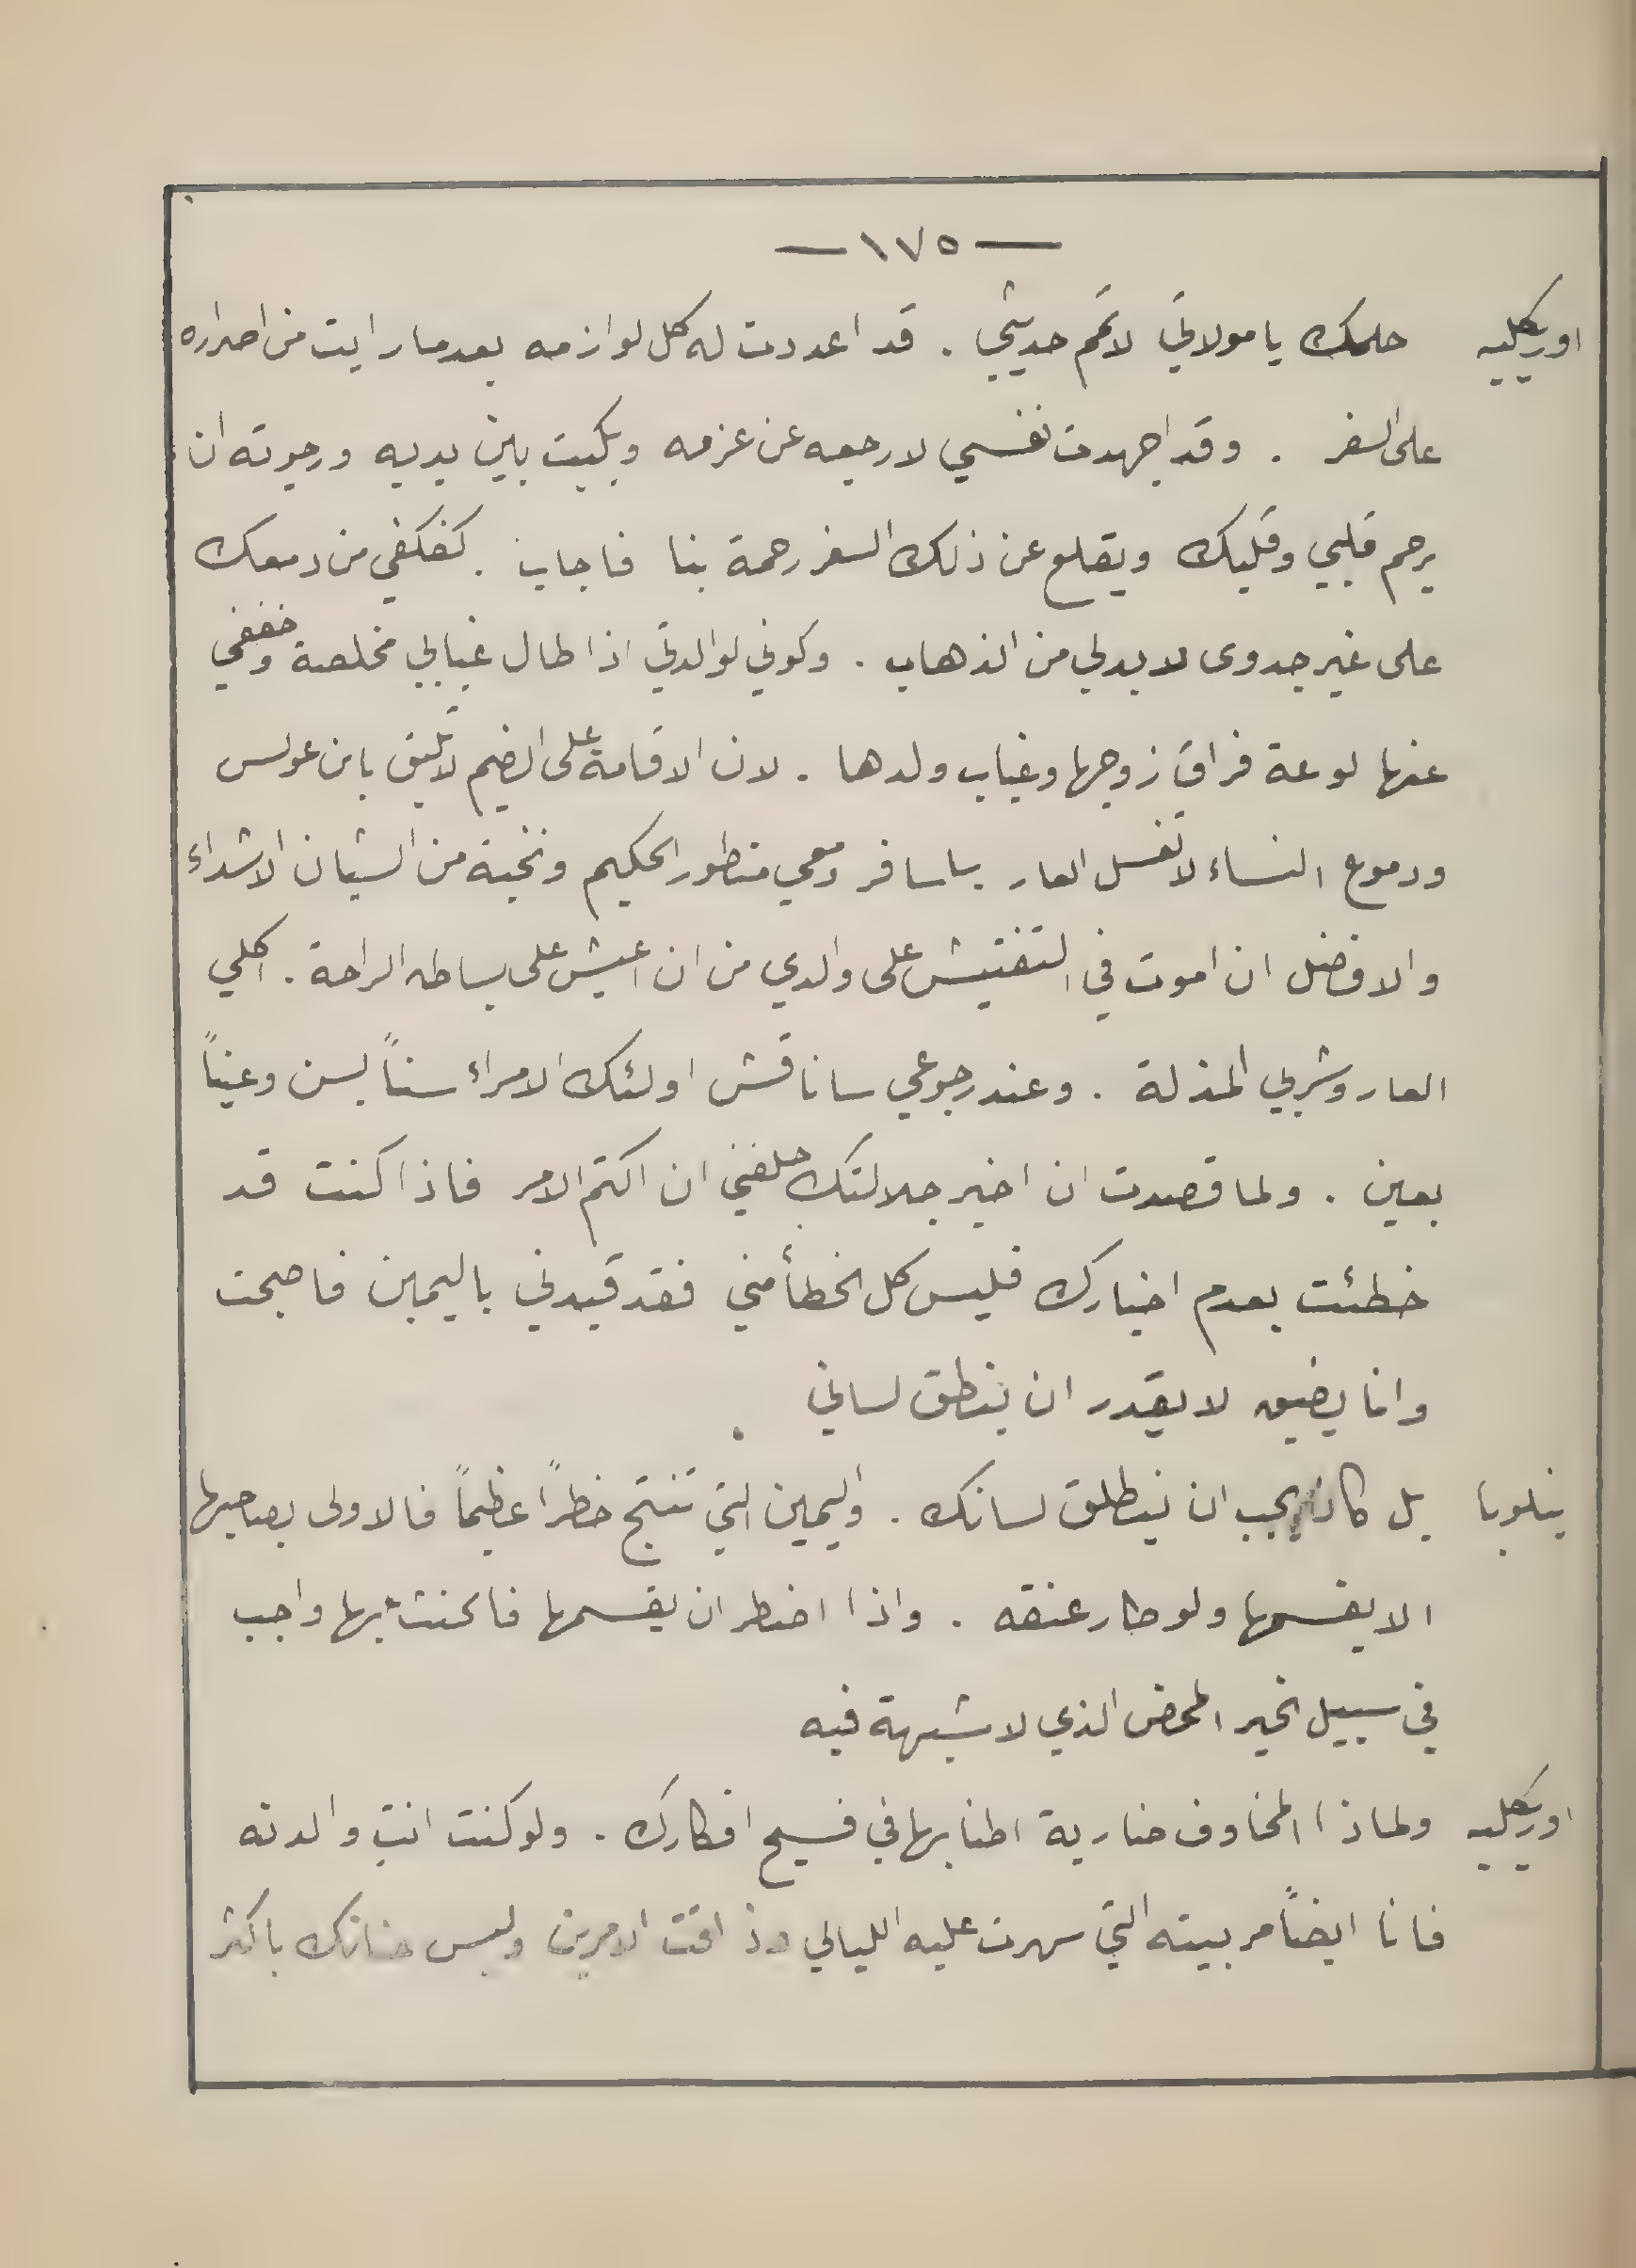 —١٧٥—
اوريكليه حلمك يا مولاتي لاتمم حديثي . قد اعددت له كل لوازمه بعدما رايت من اصراره
على السفر . وقد اجهدت نفسي لارجعه عن عزمه وبكيت بين يديه ورجوته ان
يرحم قلبي وقلبك ويقلع عن ذلك السفر رحمة بنا فاجاب . كفكفي من دمعك
على غير جدوى لا بد لي من الذهاب . وكوني لوالدتي اذا طال غيابي مخلصة وخففي
عنها لوعة فراق زوجها وغياب ولدها . لان الاقامة على الضيم لا تليق بابن عولس
ودموع النساء لا تغسل العار ساسافر ومعي منطور الحكيم ونخبة من الشبان الاشداء
والافضل ان اموت في التفتيش على والدي من ان اعيش على بساط الراحة . اكلي
العار وشربي المذلة . وعند رجوعي ساناقش اولئك الامراء سناً بسن وعيناً
بعين . ولما قصدت ان اخبر جلالتك حلفني ان اكتم الامر فاذا كنت قد
خطئت بعدم اخبارك فليس كل الخطأ مني فقد قيدني باليمين فاصبحت
وانا بضيق لا يقدر ان ينطق لساني
بنلوبا بل كان يجب ان ينطلق لسانك . واليمين التي تنتج خطراً عظيماً فالاولى بصاحبها
الا يقسمها ولو طار عنقه . واذا اضطر ان يقسمها فالحنث بها واجب
في سبيل الخير المحض الذي لا شبهة فيه
اوريكليه ولماذا المخاوف ضاربة اطنابها في فسيح افكارك . ولو كنت انتِ والدته
فانا ايضاً مربيته التي سهرت عليه الليالي وذاقت الامرين وليس حنانك باكثر